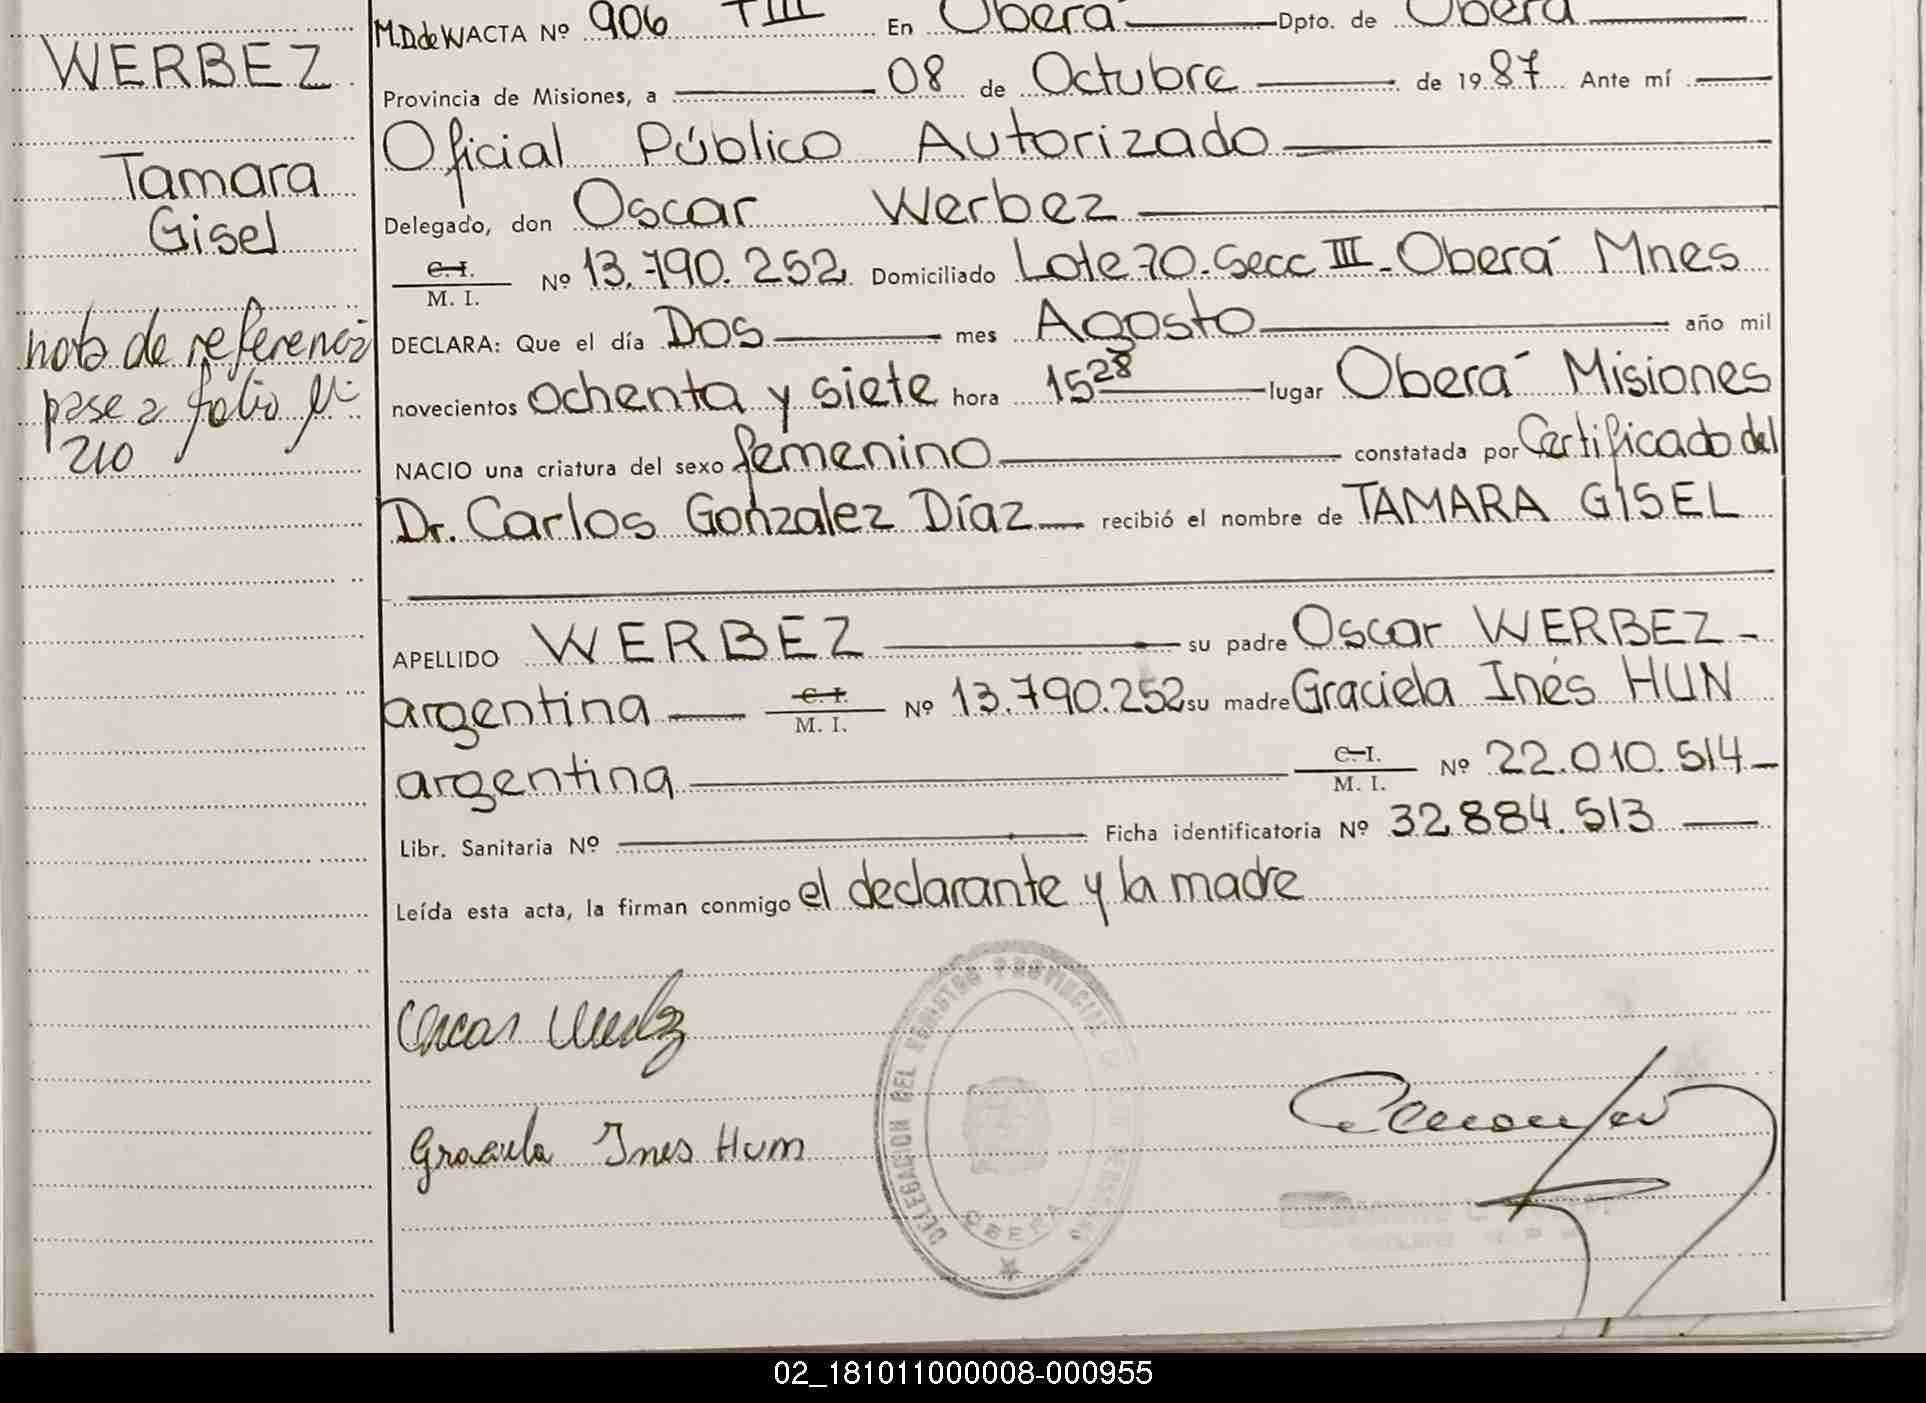 WERBEZ
Tamara
Gisel
nota de referencia
pase a folio Nº
210
M.D de W ACTA Nº 906 TIII En Oberá Dpto. de Oberá
Provincia de Misiones, a 08 de Octubre de 1987 Ante mí
Oficial Público Autorizado
Delegado, don Oscar Werbez
C. I.
M. I. Nº 13.790.252 Domiciliado Lote 70-Secc III-Oberá Mnes
DECLARA: Que el día Dos mes Agosto año mil
novecientos ochenta y siete hora 15 28 lugar Oberá Misiones
NACIO una criatura del sexo femenino constatada por Certificado del
Dr. Carlos Gonzalez Díaz recibió el nombre de TAMARA GISEL
APELLIDO WERBEZ su padre Oscar WERBEZ -
argentina C. I. M. I. Nº 13.790.252 su madre Graciela Inés HUN
argentina C. I. M. I. Nº 22.010.514
Libr. Sanitaria Nº Ficha identificatoria Nº 32.884.513
Leída esta acta, la firman conmigo el declarante y la madre
Graciela Ines Hum
DELEGACION DEL REGISTRO PROVINCIAL
OBERA
02_181011000008-000955